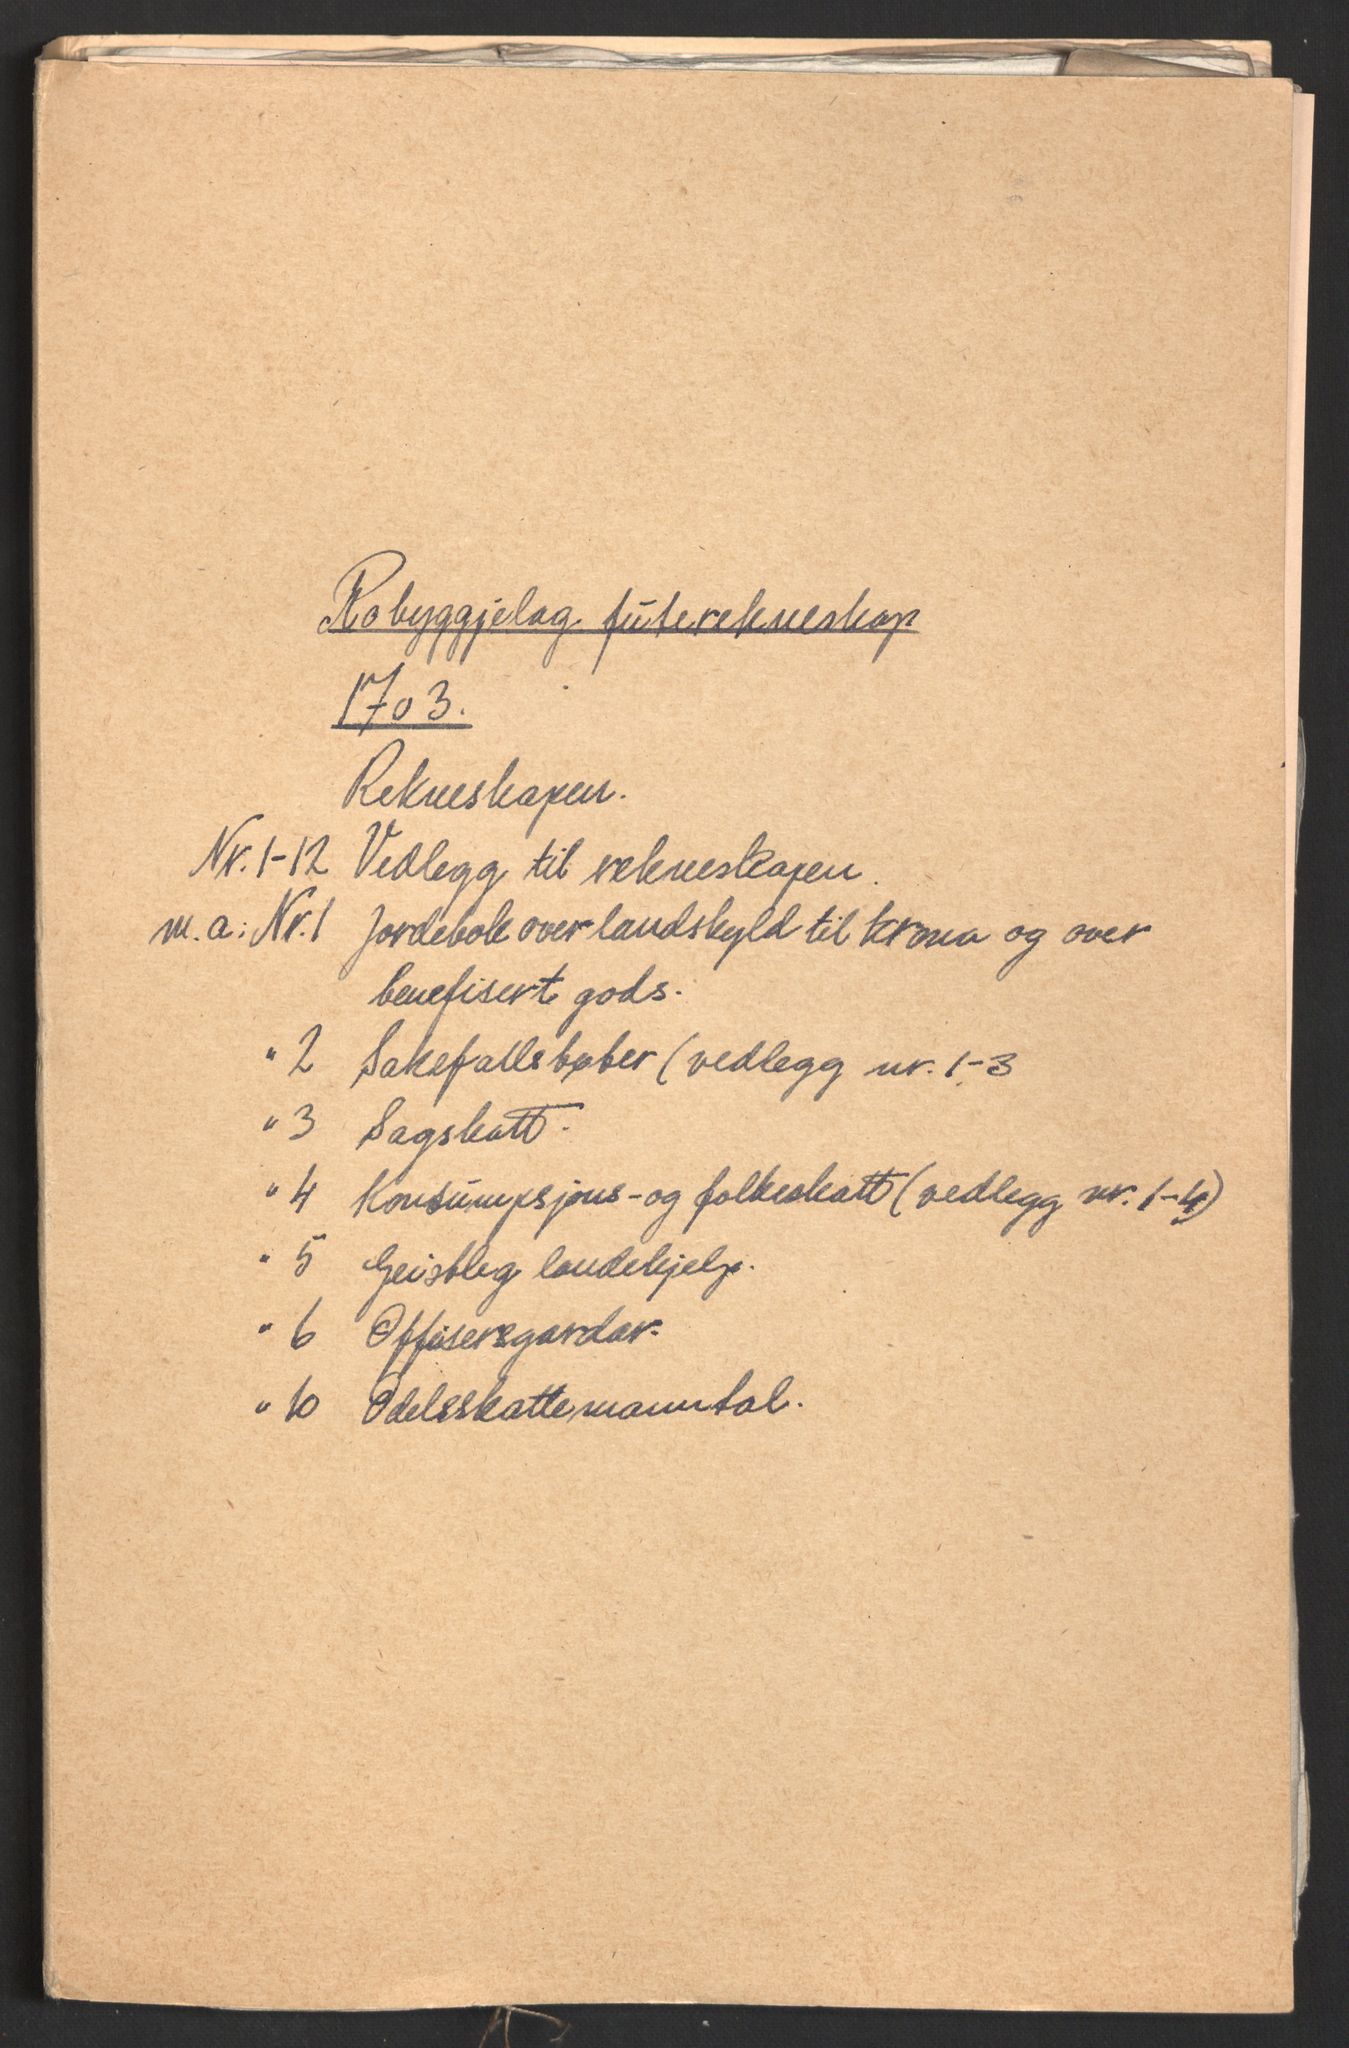 Robyggjelag futerekneskap
1703.
Rekneskapen.
Nr. 1-12 Vedlegg til rekneskapen.
m.a: Nr. 1 Jordebok over landskyld til krona og over
benefisert gods.
" 2 Sakefallsbøter (vedlegg nr. 1-3
" 3 Sagskatt.
" 4 Konsumpsjons- og folkeskatt (vedlegg nr. 1-4)
" 5 Geistleg landehjelp.
" 6 Offisersgardar.
" 10 Odelsskattemanntal.